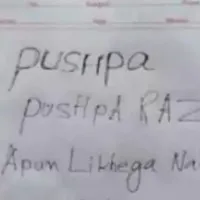 pusHpa
pusHpA RAZ
Apun Likhega Na